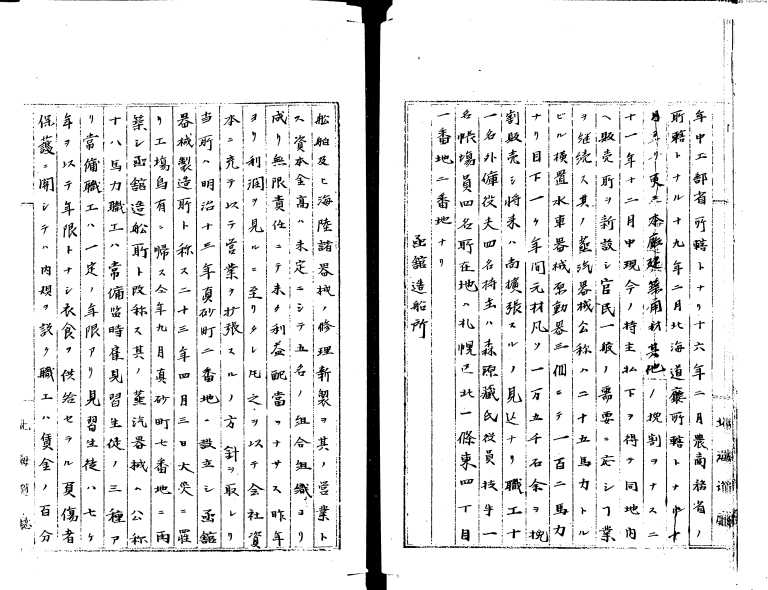 年中工部省所轄トナリ十六年二月農商務省ノ
所轄トナル十九年二月北海道廳所轄トナ
更ニ本廳建築用材其他ノ挽割ヲナスニ
十一年十二月中現今ノ持主払下ヲ得テ同地内
ヘ販売所ヲ新設シ官民一般ノ需要ニ応シ
ヲ継続ス其ノ蒸汽器械公称ハ二十五馬力トル
ビル横置水車器械原動器三個ニテ一百二馬力
ナリ目下一ケ年間元材凡ソ一万五千石余ヲ挽
割販売シ将来ハ尚擴張スルノ見込ナリ職工十
一名外傭役夫四名持主ハ森源蔵氏役員技手一
名帳場員四名所在地ハ札幌区北一條東四丁目
一番地二番地ナリ
函舘造船所
船舶及ヒ海陸諸器械ノ修理新製ヲ其ノ営業ト
ス資本金高ハ未定ニシテ五名ノ組合組織ヨリ
成リ無限責任ニテ未タ利益配當ヲナサス昨年
ヨリ利潤ヲ見ルニ至リタレ圧之ヲ以テ会社資
本ニ充テ以テ営業ヲ拡張スルノ方針ヲ取レリ
当所ハ明治十三年真砂町二番地ニ設立シ函舘
器械製造所ト称ス二十三年四月三日大災ニ罹
リ工塲烏有ニ帰ス仝年九月真砂町七番地ニ再
築シ函舘造船所ト改称ス其ノ蒸汽器械ハ公称
十八馬力職工ハ常傭臨時雇見習生徒ノ三種ア
リ常傭職工ハ一定ノ年限アリ見習生徒ハ七ケ
年ヲ以テ年限トナシ衣食ヲ供給セラル負傷者
保護ニ関シテハ内規ヲ設ク職工ハ賃金ノ百分